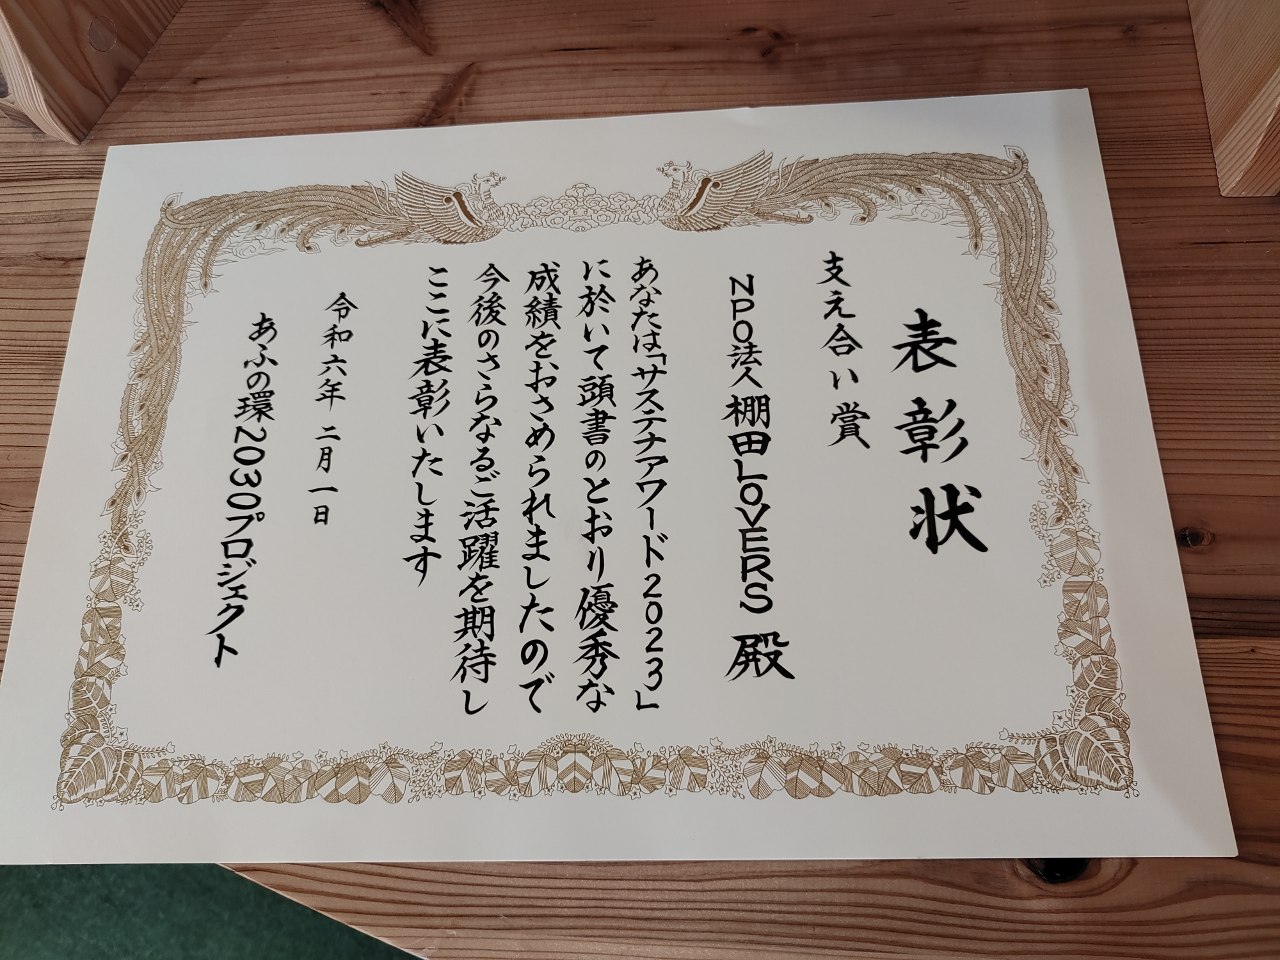 表彰状
支え合い賞
NPO法人棚田LOVERS 殿
あなたは「サステナアワード2023」
に於いて頭書のとおり優秀な
成績をおさめられましたので
今後のさらなるご活躍を期待し
ここに表彰いたします
令和六年 二月一日
あふの環2030プロジェクト